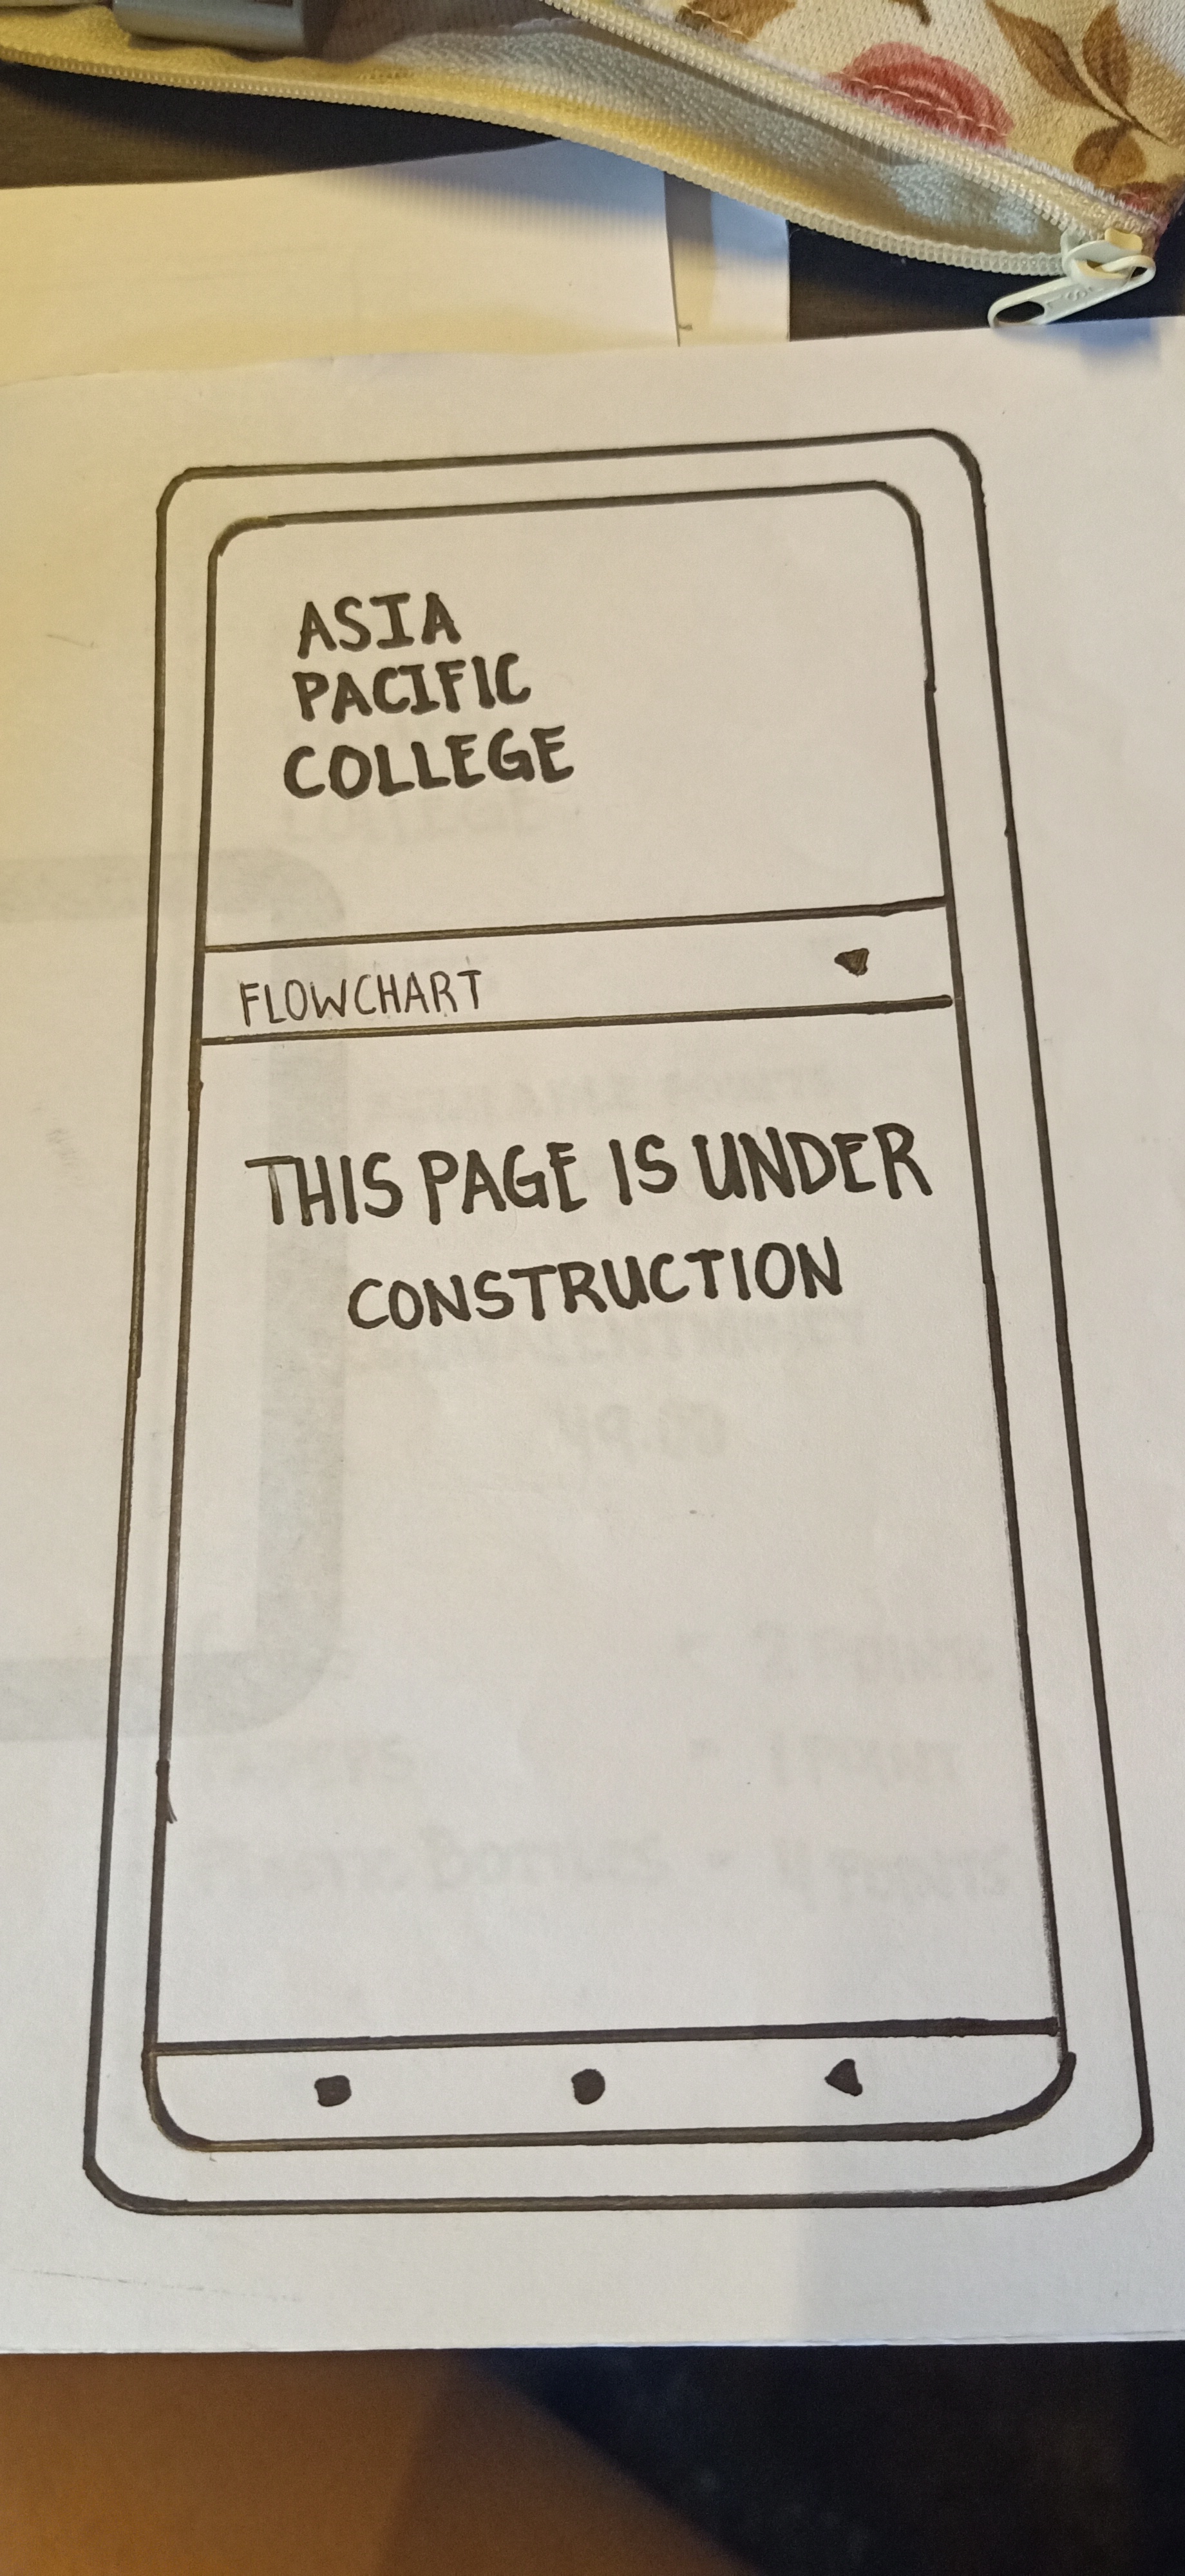 ASIA
PACIFIC
COLLEGE
FLOWCHART
THIS PAGE IS UNDER
CONSTRUCTION